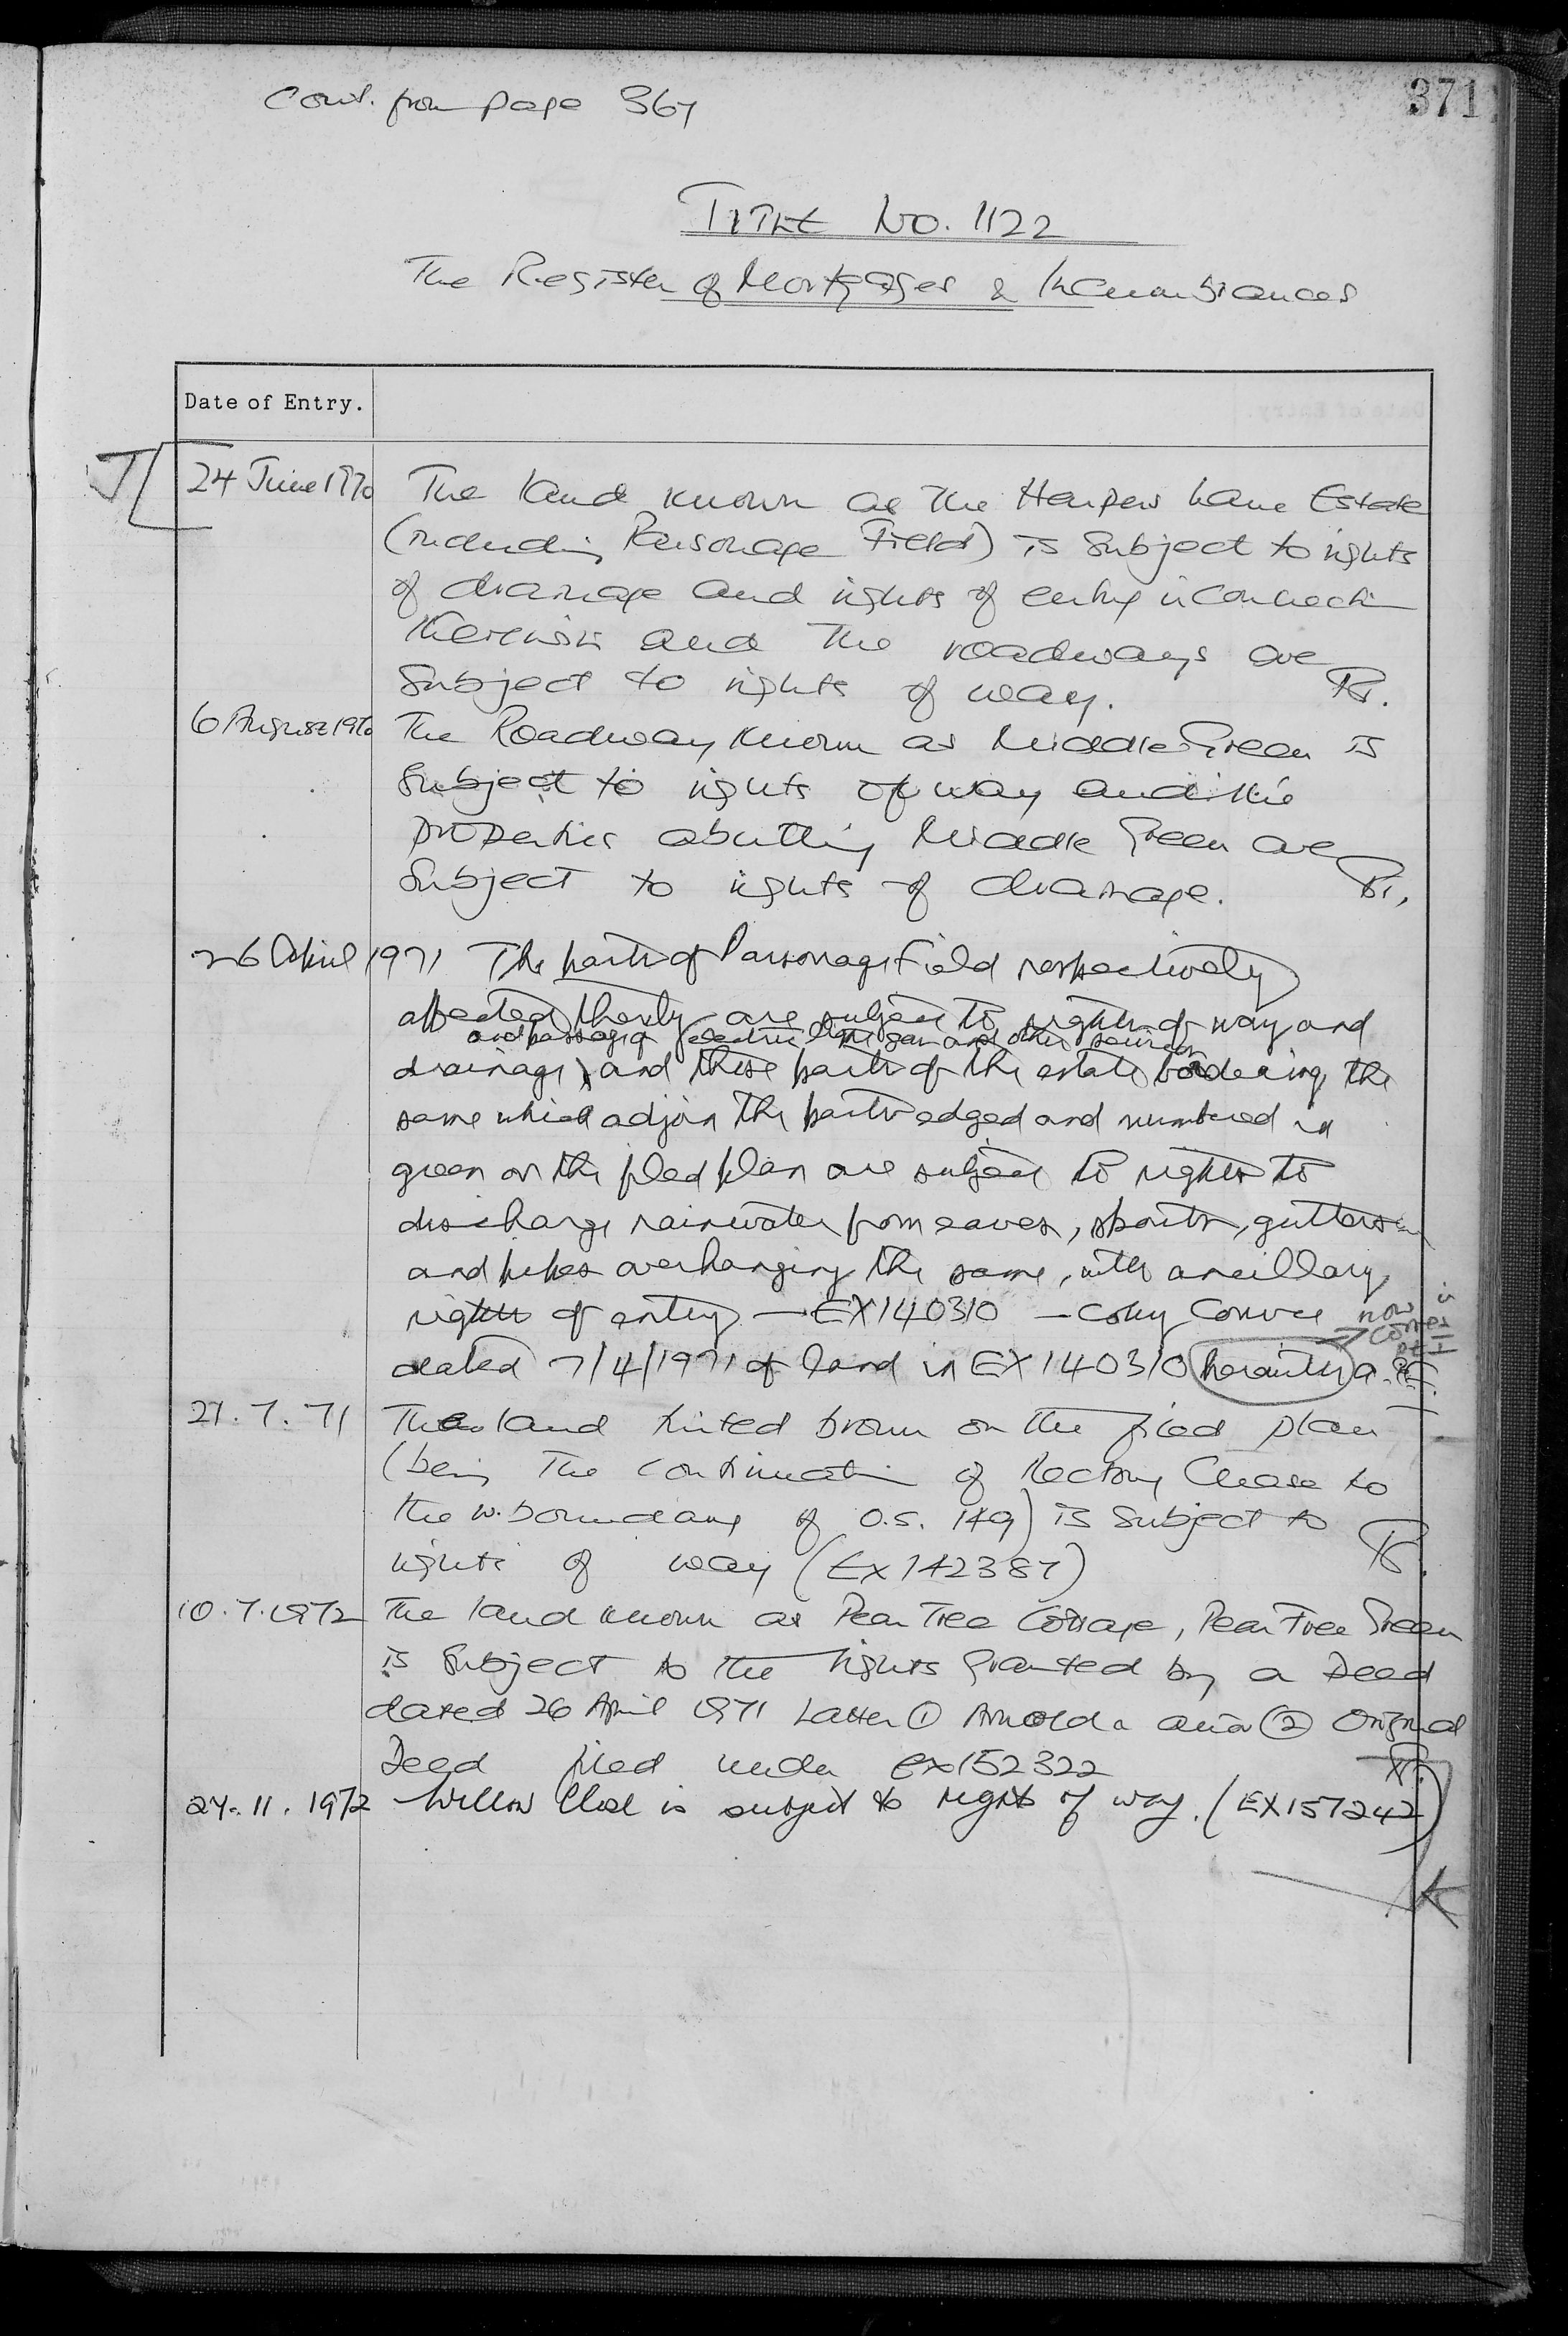 Cont. from page 367
371
TITLE NO. 1122
The Register of Mortgages & Incumbrances
Date of Entry.
24 June 1970 The land known as the Harpers Lane Estate
(including Parsonage Field) is subject to rights
of drainage and rights of entry in connection
therewith and the roadways are
subject to rights of way.
6 August 1970 The Roadway known as Middle Green is
subject to rights of way and the
properties abutting Middle Green are
subject to rights of drainage.
26 April 1971 The parts of Parsonage Field respectively
affected thereby are subject to rights of way and
and passage of electric light gas and other services
drainage and those parts of the estate bordering the
same which adjoin the parts edged and numbered in
green on the filed plan are subject to rights to
discharge rainwater from eaves, spouts, gutters
and pipes overhanging the same, with ancillary
rights of entry — EX140310 — Copy Convce
dated 7/4/1971 of land in EX140310 herewith
now
27.7.71 The land tinted brown on the filed plan
(being the continuation of Rectory Chase to
the W. boundary of O.S. 149) is subject to
rights of way (EX142387)
10.7.1972 The land known as Pear Tree Cottage, Pear Tree Green
is subject to the rights granted by a Deed
dated 26 April 1971 Latter ① Arnold & anor ② Original
Deed filed under EX152322
27.11.1972 Willow Close is subject to rights of way. (EX157242)
K